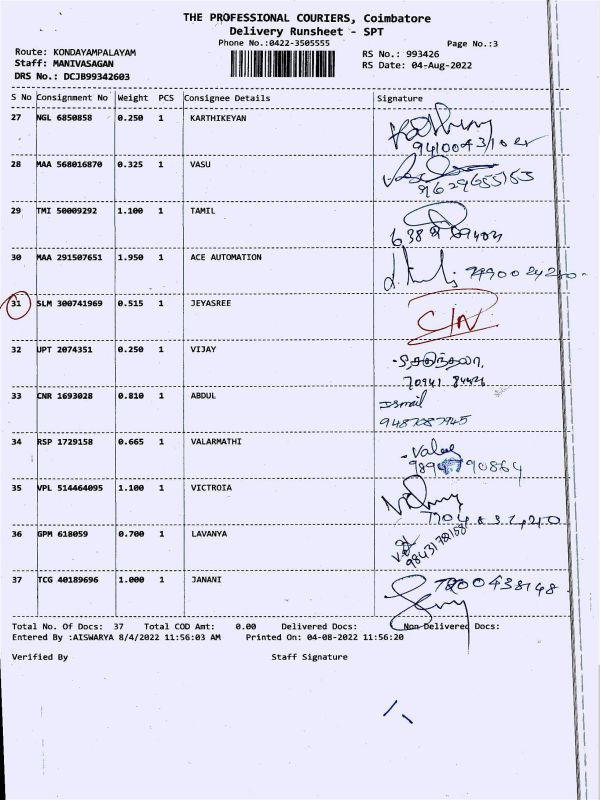 THE PROFESSIONAL COURIERS, Coimbatore
Delivery Runsheet - SPT
Phone No.:0422-3505555
Page No.:3
Route: KONDAYAMPALAYAM
RS No.: 993426
Staff: MANIVASAGAN
RS Date: 04-Aug-2022
DRS No.: DCJB99342603
S No Consignment No Weight PCS Consignee Details Signature
27 NGL 6850858 0.250 1 KARTHIKEYAN
28 MAA 568016870 0.325 1 VASU
9629655153
29 TMI 50009292 1.100 1 TAMIL
30 MAA 291507651 1.950 1 ACE AUTOMATION
31 SLM 300741969 0.515 1 JEYASREE
C/N
32 UPT 2074351 0.250 1 VIJAY
70941 84426
33 CNR 1693028 0.810 1 ABDUL
Ismail
9487087945
34 RSP 1729158 0.665 1 VALARMATHI
35 VPL 514464095 1.100 1 VICTROIA
36 GPM 618059 0.700 1 LAVANYA
9843178158
37 TCG 40189696 1.000 1 JANANI
7200438148
Total No. Of Docs: 37 Total COD Amt: 0.00 Delivered Docs: Non Delivered Docs:
Entered By :AISWARYA 8/4/2022 11:56:03 AM Printed On: 04-08-2022 11:56:20
Verified By Staff Signature